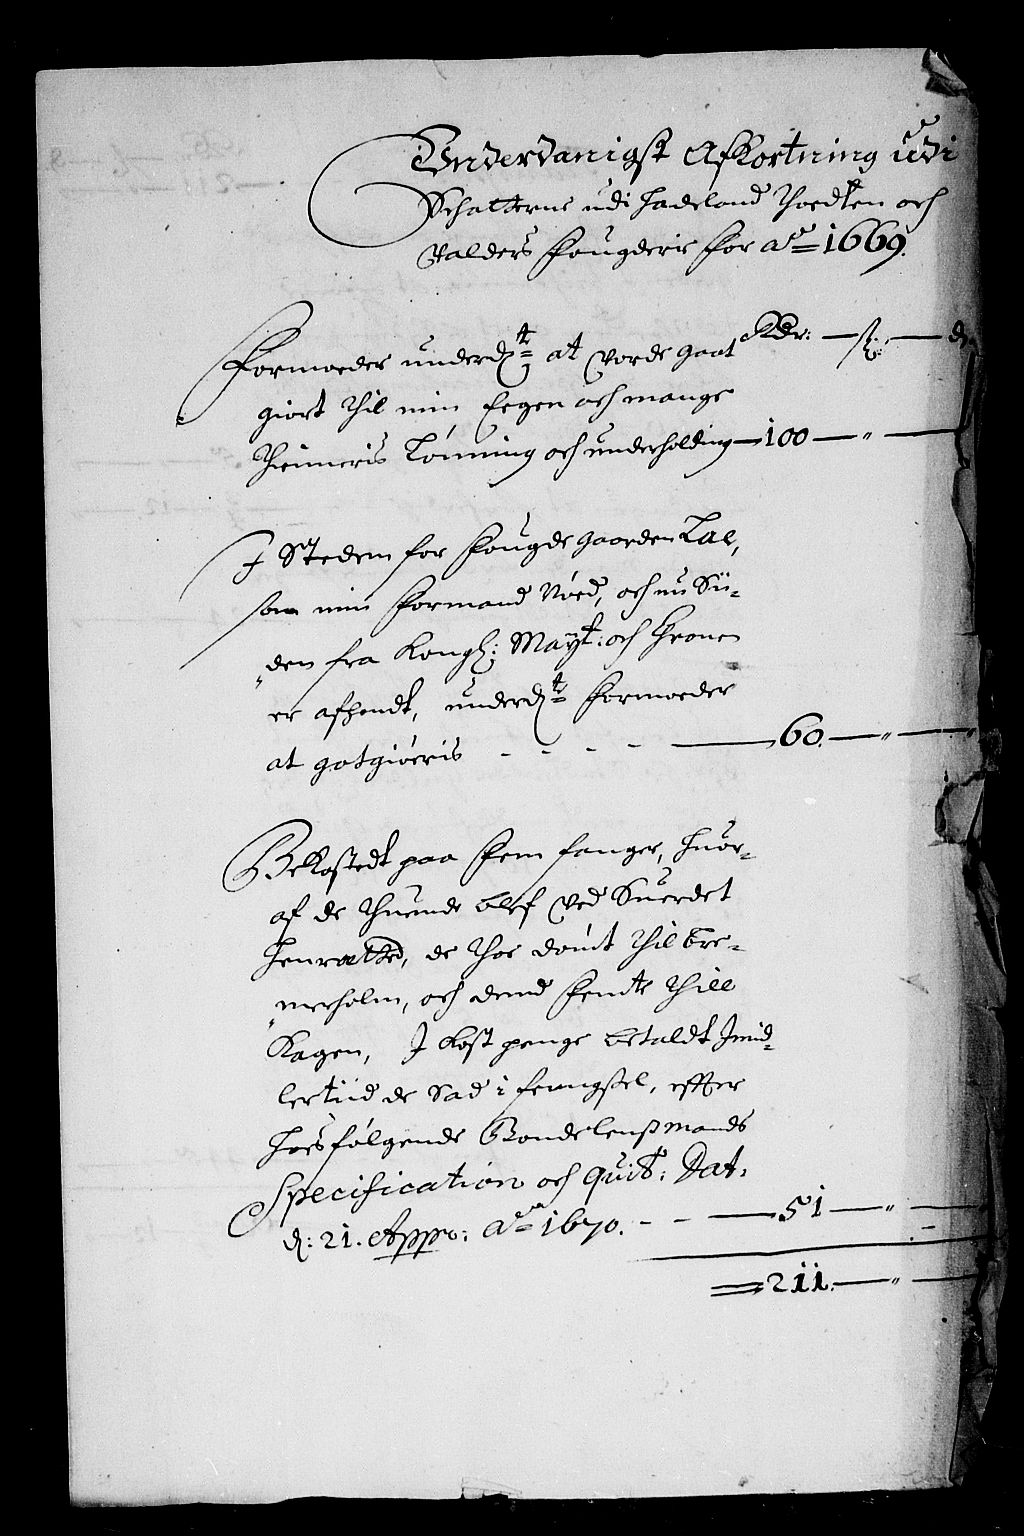 Underdanigst Afkortning udi
Schatterne udi Hadeland Thoedten och
Valders Fougderie for ao 1669.
Rdr: — ß: — d
Formoeder underdt at vorde gaat
giort thil min Eegen och mange
Thienneris Lønning och underholding — 100 — " —
J Steden for Fougde gaarden Lae,
som min Formand Nød, och nu Si-
den fra Kongl: Mayt: och Cronen
er afhendt, underdte Formoeder
at gotgiøeris - - - - — 60. — " — "
Bekostedt paa Fem fanger, huor-
af de thuende blef ved Suerdet
henrætted, de thoe dømt thil Bre-
merholm, och dend Femte thill
Kagen, J Kost penge betaldt Jmid-
lertiid de Sad i fengßel, effter
hoesfølgende Bondelenßmands
Specification och quit: Dat:
d: 21. Appr: Ao 1670. - - — 51 — " —
211. — " —